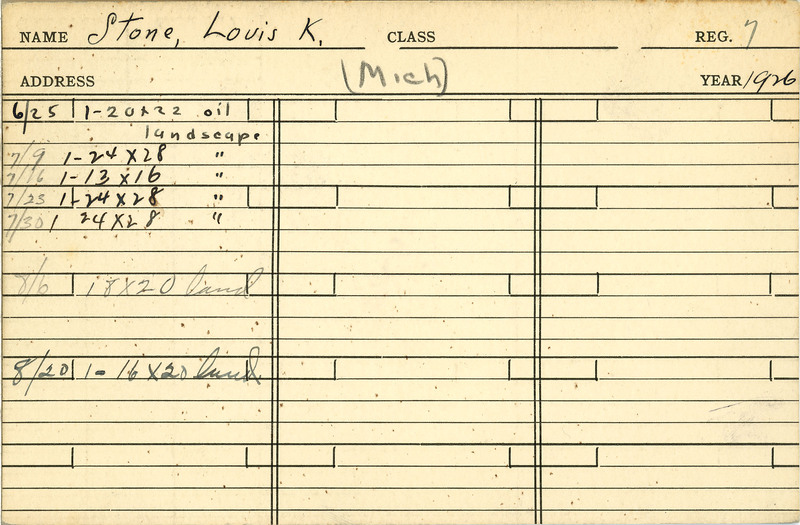 NAME Stone, Louis K. CLASS REG. 7
ADDRESS (Mich) YEAR 1926
6/25 1-20x22 oil
landscape
7/9 1-24x28 "
7/16 1-13x16 "
7/23 1-24x28 "
7/30 1 24x28 "
8/6 18x20 land
8/20 1-16x20 land